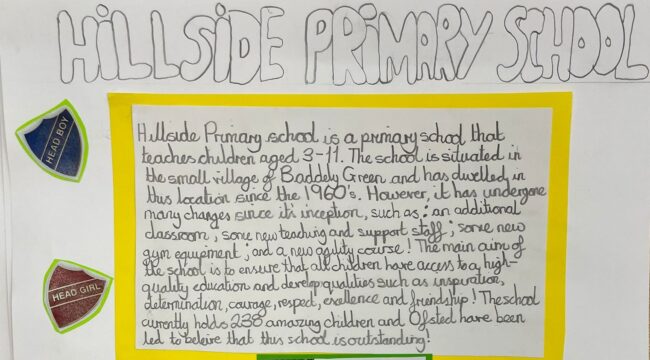 HILLSIDE PRIMARY SCHOOL
HEAD BOY
Hillside Primary school is a primary school that
teaches children aged 3-11. The school is situated in
the small village of Baddely Green and has dwelled in
this location since the 1960's. However, it has undergone
many changes since it's inception, such as: an additional
classroom; some new teaching and support staff; some new
gym equipment; and a new agility course! The main aim of
the school is to ensure that all children have access to a high-
quality education and develop qualities such as inspiration,
determination, courage, respect, exellence and friendship! The school
currently holds 238 amazing children and Ofsted have been
led to beleive that this school is outstanding!
HEAD GIRL